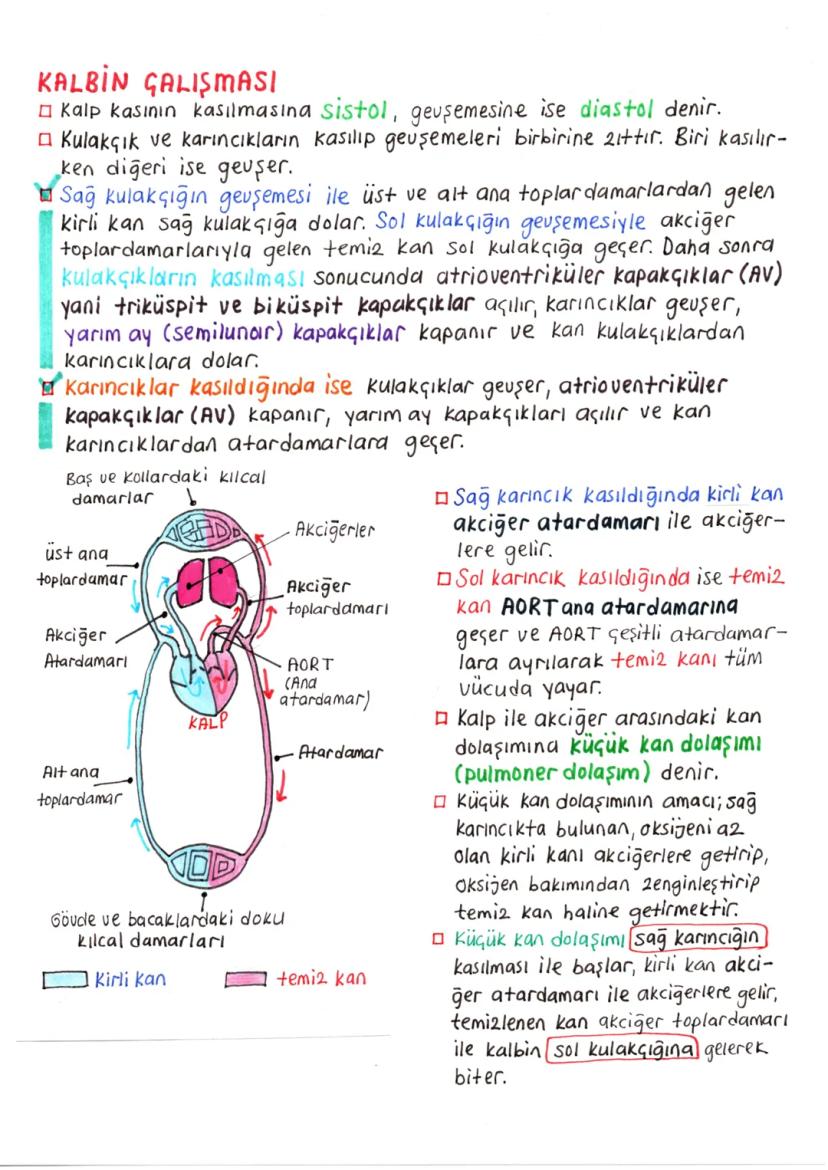 KALBİN ÇALIŞMASI
Kalp kasının kasılmasına sistol, gevşemesine ise diastol denir.
Kulakçık ve karıncıkların kasılıp gevşemeleri birbirine zıttır. Biri kasılır-
ken diğeri ise gevşer.
Sağ kulakçığın gevşemesi ile üst ve alt ana toplardamarlardan gelen
kirli kan sağ kulakçığa dolar. Sol kulakçığın gevşemesiyle akciğer
toplardamarlarıyla gelen temiz kan sol kulakçığa geçer. Daha sonra
kulakçıkların kasılması sonucunda atrioventriküler kapakçıklar (AV)
yani triküspit ve biküspit kapakçıklar açılır, karıncıklar gevşer,
yarım ay (semilunar) kapakçıklar kapanır ve kan kulakçıklardan
karıncıklara dolar.
Karıncıklar kasıldığında ise kulakçıklar gevşer, atrioventriküler
kapakçıklar (AV) kapanır, yarım ay kapakçıkları açılır ve kan
karıncıklardan atardamarlara geçer.
Baş ve kollardaki kılcal
damarlar
Akciğerler
üst ana
toplardamar
Akciğer
toplardamarı
Akciğer
Atardamarı
AORT
(Ana
atardamar)
KALP
Atardamar
Alt ana
toplardamar
Gövde ve bacaklardaki doku
kılcal damarları
Kirli kan
temiz kan
Sağ karıncık kasıldığında kirli kan
akciğer atardamarı ile akciğer-
lere gelir.
Sol karıncık kasıldığında ise temiz
kan AORT ana atardamarına
geçer ve AORT çeşitli atardamar-
lara ayrılarak temiz kanı tüm
vücuda yayar.
Kalp ile akciğer arasındaki kan
dolaşımına küçük kan dolaşımı
(pulmoner dolaşım) denir.
Küçük kan dolaşımının amacı; sağ
karıncıkta bulunan, oksijeni az
olan kirli kanı akciğerlere getirip,
oksijen bakımından zenginleştirip
temiz kan haline getirmektir.
Küçük kan dolaşımı sağ karıncığın
kasılması ile başlar, kirli kan akci-
ğer atardamarı ile akciğerlere gelir,
temizlenen kan akciğer toplardamarı
ile kalbin sol kulakçığına gelerek
biter.